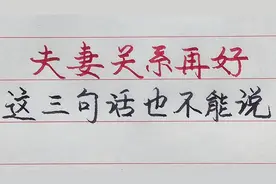 夫妻关系再好
这三句话也不能说